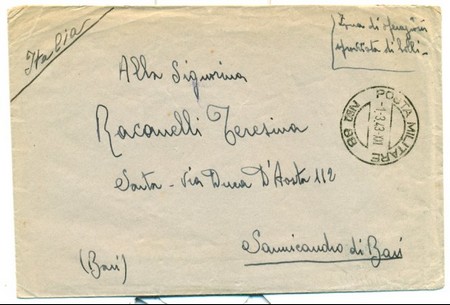 Italia
Zona di operazioni
sprovvista di bolli -
Alla Signorina
Racanelli Teresina
Santa - Via Duca D'Aosta 112
(Bari)
Sannicandro di Bari
POSTA MILITARE
-1.3.43.XXI
N° 88